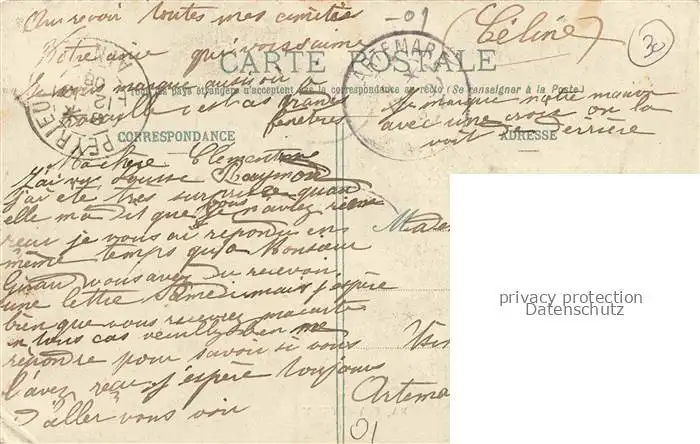 Au revoir toutes mes amitiés
-01
(Céline)
30
Votre amie qui vous aime
CARTE POSTALE
ARTEMARE
Je vous marque aussi où
Tous les pays étrangers n'acceptent pas la correspondance au recto (Se renseigner à la Poste)
travaille c'est as grandes
fenêtres
Je marque notre maison
avec une croix on la
voit de derrière
CORRESPONDANCE
ADRESSE
Ma chère Clementine
J'ai vu Louise Raymond
j'ai été très surprise quand
elle m'a dit que vous n'avez rien
reçu je vous ai repondu en
même temps qu'a Monsieur
Girau vous avez du recevoir
une lettre Samedi mais j'espère
bien que vous recevrez ma carte
en tous cas veuillez bien me
répondre pour savoir si vous
l'avez reçu j'espère toujours
d'aller vous voir
Artema
01
privacy protection
Datenschutz